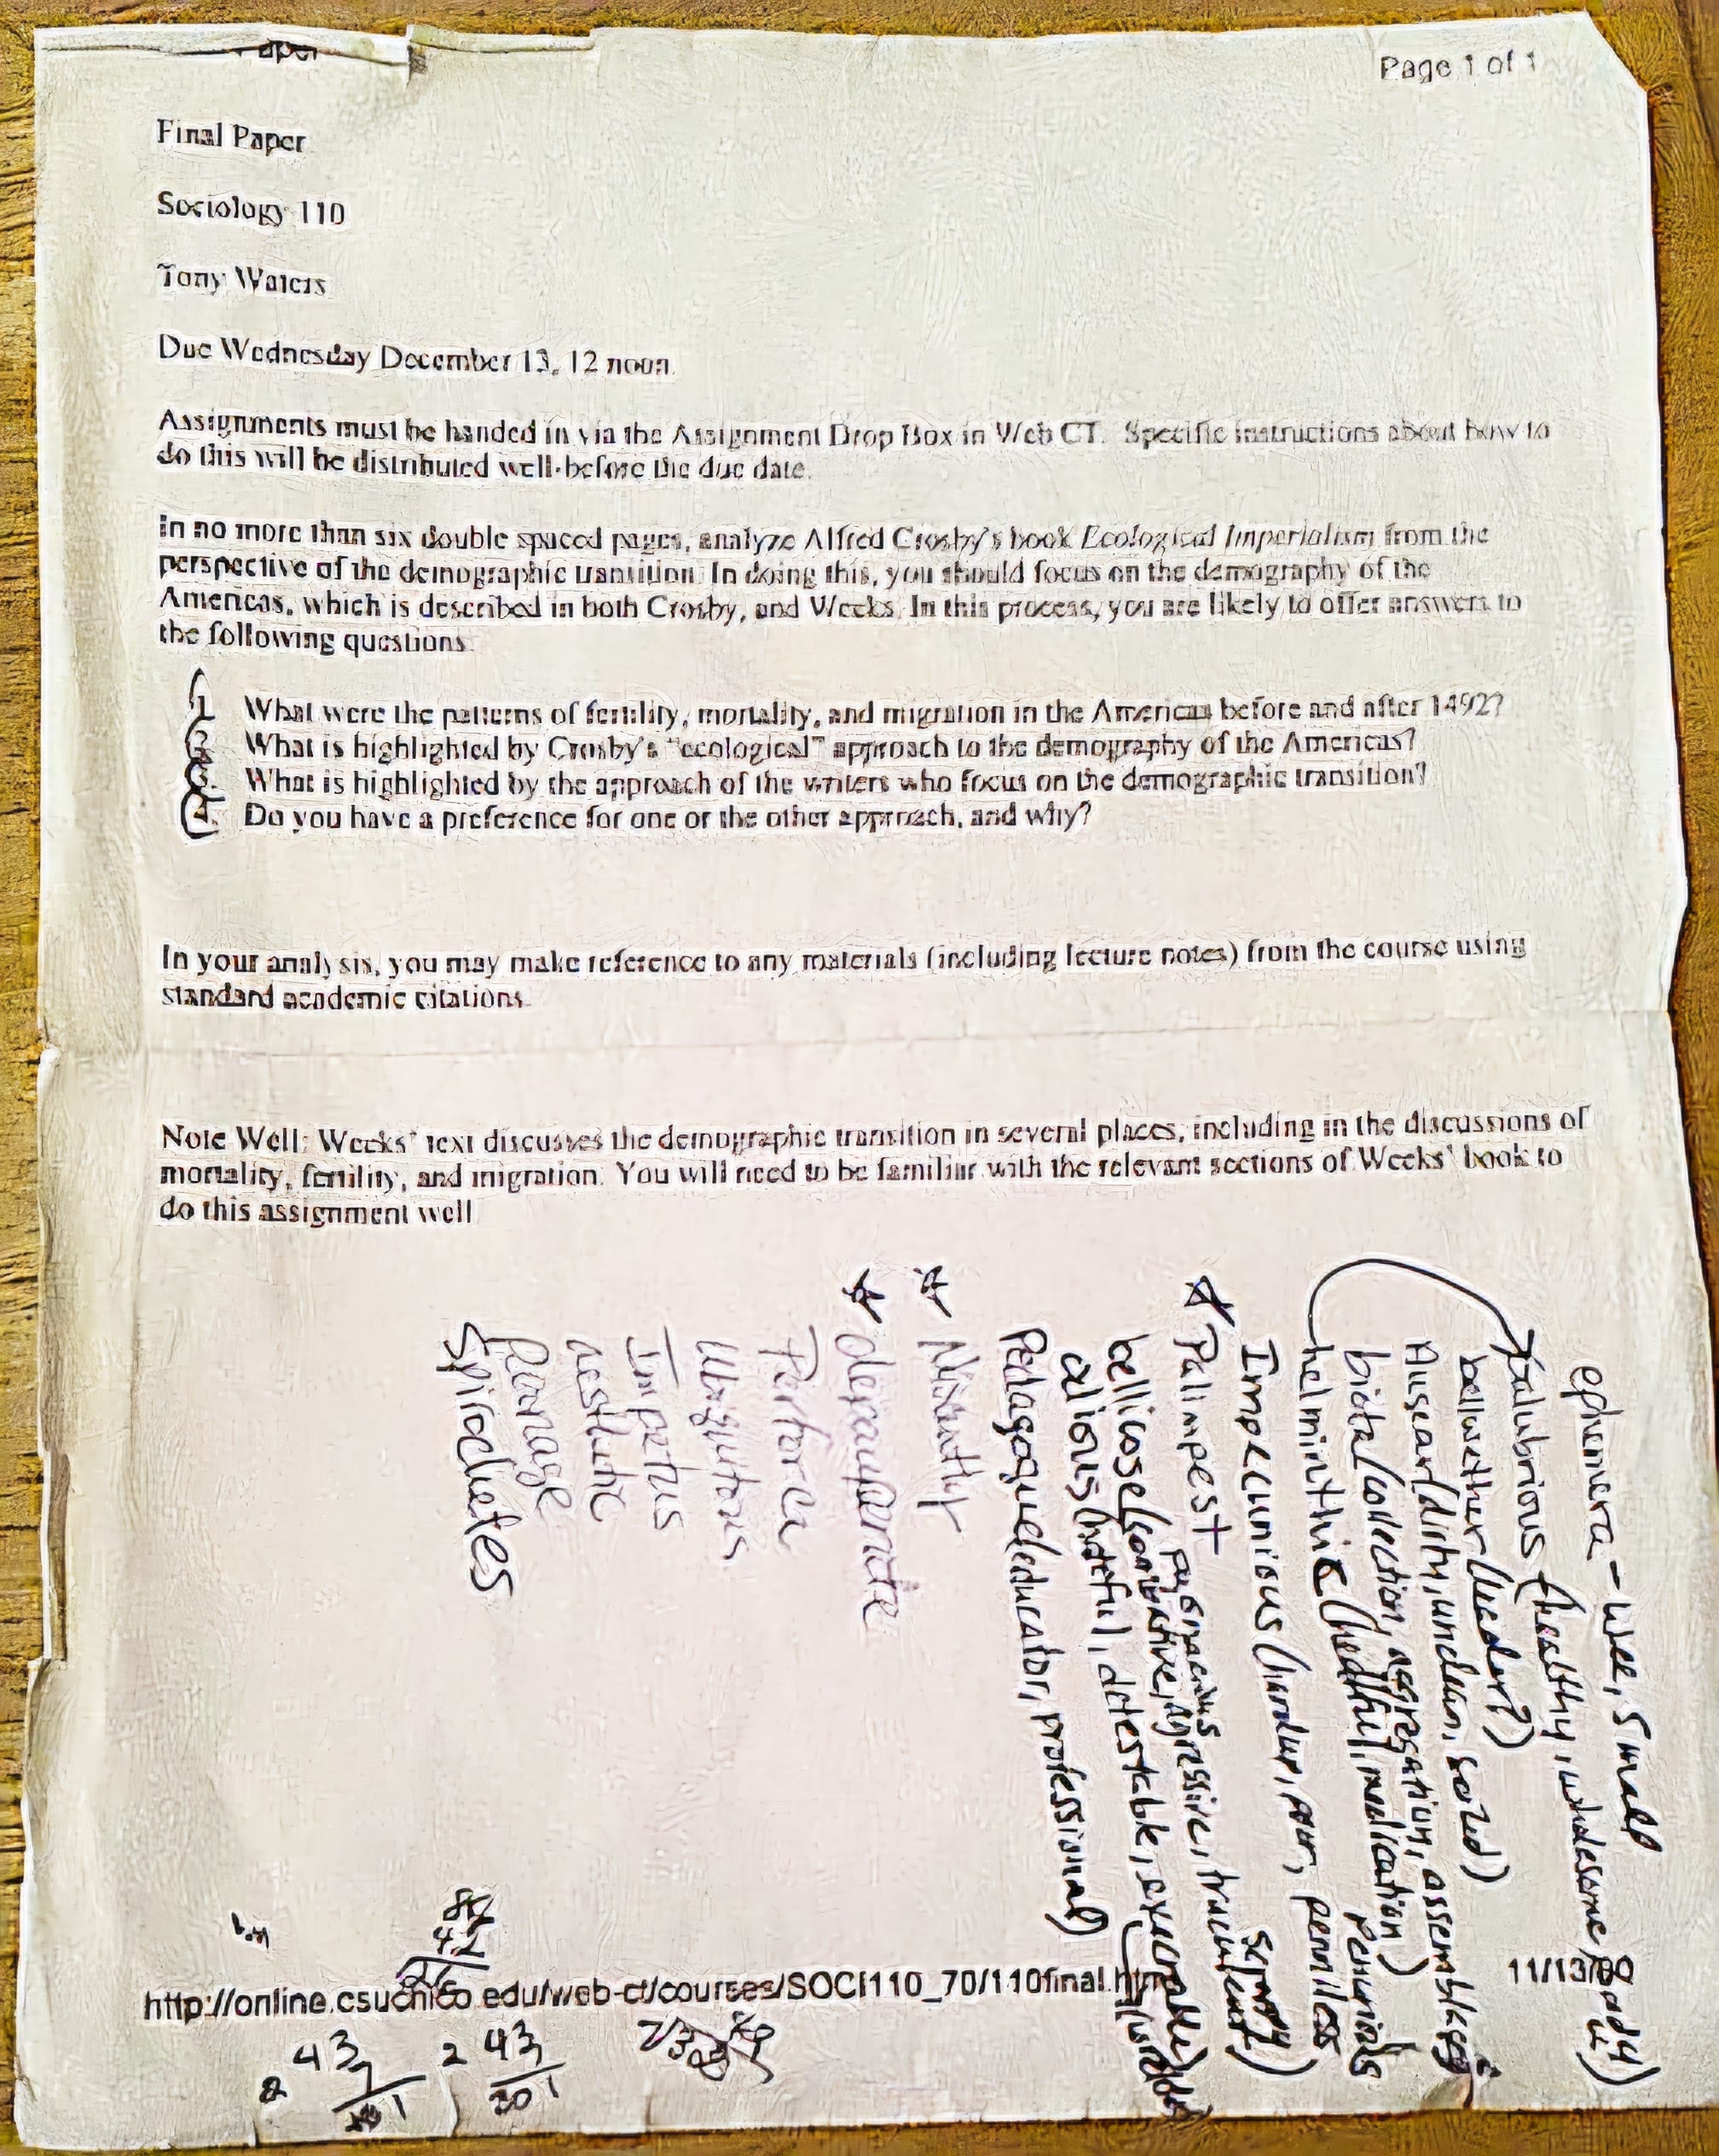 Page 1 of 1
Final Paper
Sociology 110
Tony Waters
Due Wednesday December 13, 12 noon.
Assignments must be handed in via the Assignment Drop Box in Web CT. Specific instructions about how to
do this will be distributed well before the due date.
In no more than six double spaced pages, analyze Alfred Crosby's book Ecological Imperialism from the
perspective of the demographic transition. In doing this, you should focus on the demography of the
Americas, which is described in both Crosby, and Weeks. In this process, you are likely to offer answers to
the following questions
1. What were the patterns of fertility, mortality, and migration in the Americas before and after 1492?
2. What is highlighted by Crosby's "ecological" approach to the demography of the Americas?
3. What is highlighted by the approach of the writers who focus on the demographic transition?
4. Do you have a preference for one or the other approach, and why?
In your analysis, you may make reference to any materials (including lecture notes) from the course using
standard academic citations.
Note Well: Weeks' text discusses the demographic transition in several places, including in the discussions of
mortality, fertility, and migration. You will need to be familiar with the relevant sections of Weeks' book to
do this assignment well
ephemera - wee, small
salubrious (healthy, wholesome,
bellwether (leader?)
(dirty, unclean,
biota (collection, aggregation, assemblage
helminthic (healthful, medication)
Impecunious ( poor, penniless
Palimpest
bellicose (combative, agressive, truculent)
odious (hateful, detestable, execrable)
Pedagogue (educator, professional)
Perforce
Ubiquitous
Impetus
aesthetic
Spirochetes
http://online.csuchico.edu/web-ct/courses/SOCI110_70/110final.htm
11/13/00
2 43
2 43